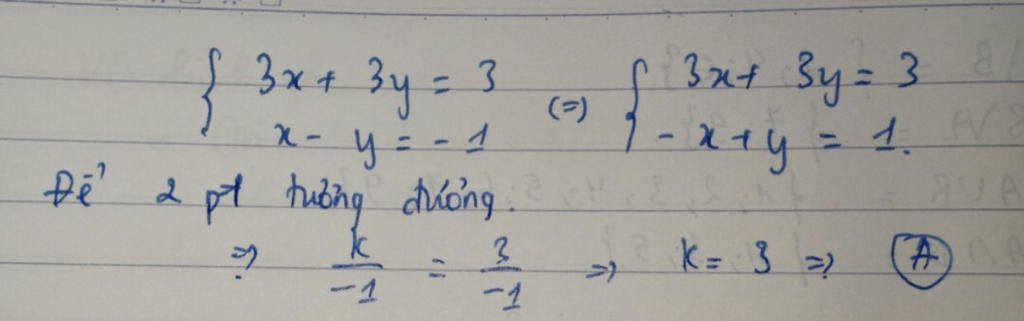 { 3x + 3y = 3 (=) { 3x + 3y = 3
x - y = -1 - x + y = 1.
Để 2 pt tương đương.
=> k/-1 = 3/-1 => k = 3 => A